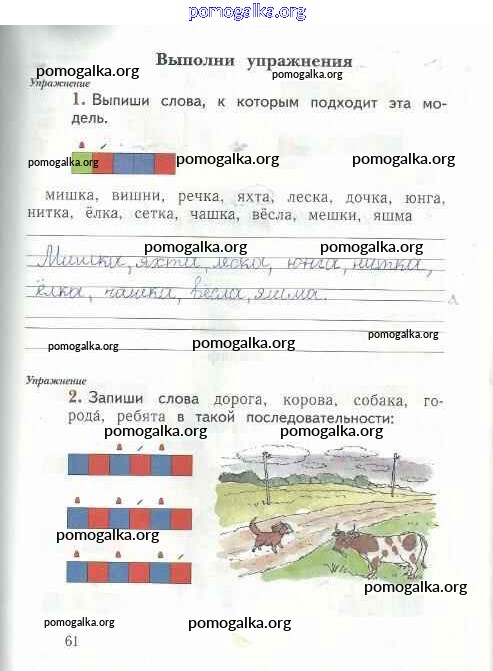 pomogalka.org
Выполни упражнения
pomogalka.org pomogalka.org
Упражнение
1. Выпиши слова, к которым подходит эта мо-
дель.
pomogalka.org pomogalka.org pomogalka.org
мишка, вишни, речка, яхта, леска, дочка, юнга,
нитка, ёлка, сетка, чашка, вёсла, мешки, яшма
pomogalka.org pomogalka.org
Мишка, яхта, леска, юнга, нитка,
ёлка, чашка, вёсла, яшма.
pomogalka.org
pomogalka.org pomogalka.org
Упражнение
2. Запиши слова дорога, корова, собака, го-
рода́, ребята в такой последовательности:
pomogalka.org pomogalka.org
pomogalka.org
pomogalka.org
pomogalka.org pomogalka.org
61
pomogalka.org